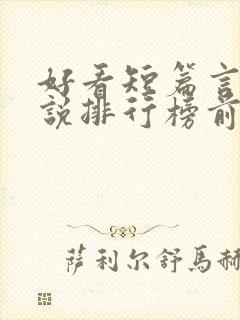 好看短篇言
說排行榜前
萨利尔舒馬赫